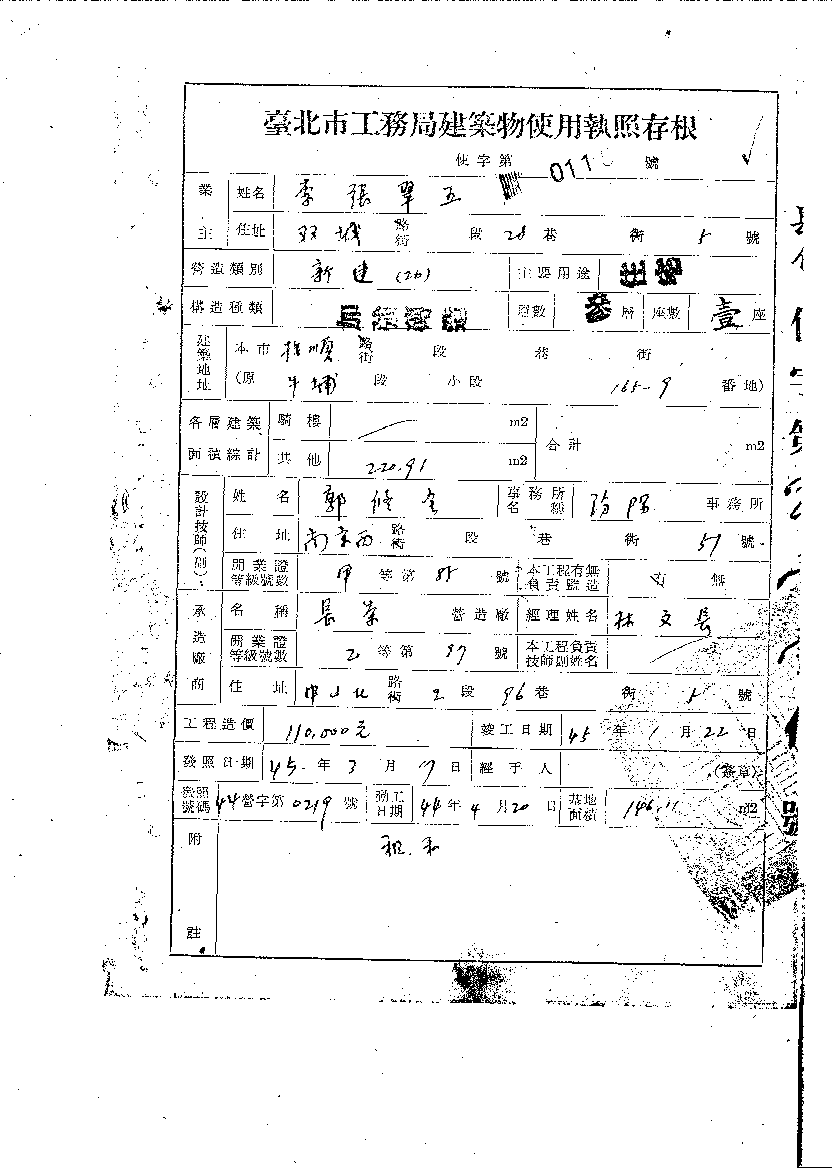 臺北市工務局建築物使用執照存根
使字第 011 號
業主 姓名 李張翠五
住址 双城 路街 段 28 巷 街 5 號
營造類別 新建(2b) 主要用途 住宅
構造種類 層數 參 層 座數 壹 座
建築地址 本市 撫順 路街 段 巷 街
(原 牛埔 段 小段 165-9 番地)
各層建築面積綜計 騎樓 m2 合計 m2
其他 220.91 m2
設計技師(副) 姓名 郭修 事務所名稱 事務所
住址 南京西 路街 段 巷 街 51 號
開業證等級號數 甲 等第 85 號 本工程有無負責監造 有 無
承造廠商 名稱 長榮 營造廠 經理姓名 林文長
開業證等級號數 乙 等第 97 號 本工程負責技師副姓名
住址 中山北 路街 2 段 96 巷 街 5 號
工程造價 110,000元 竣工日期 45 年 1 月 22 日
發照日期 45 年 3 月 17 日 經手人 (簽章)
發照號碼 44 營字第 0219 號 動工日期 44 年 4 月 20 日 基地面積 146.11 m2
附註